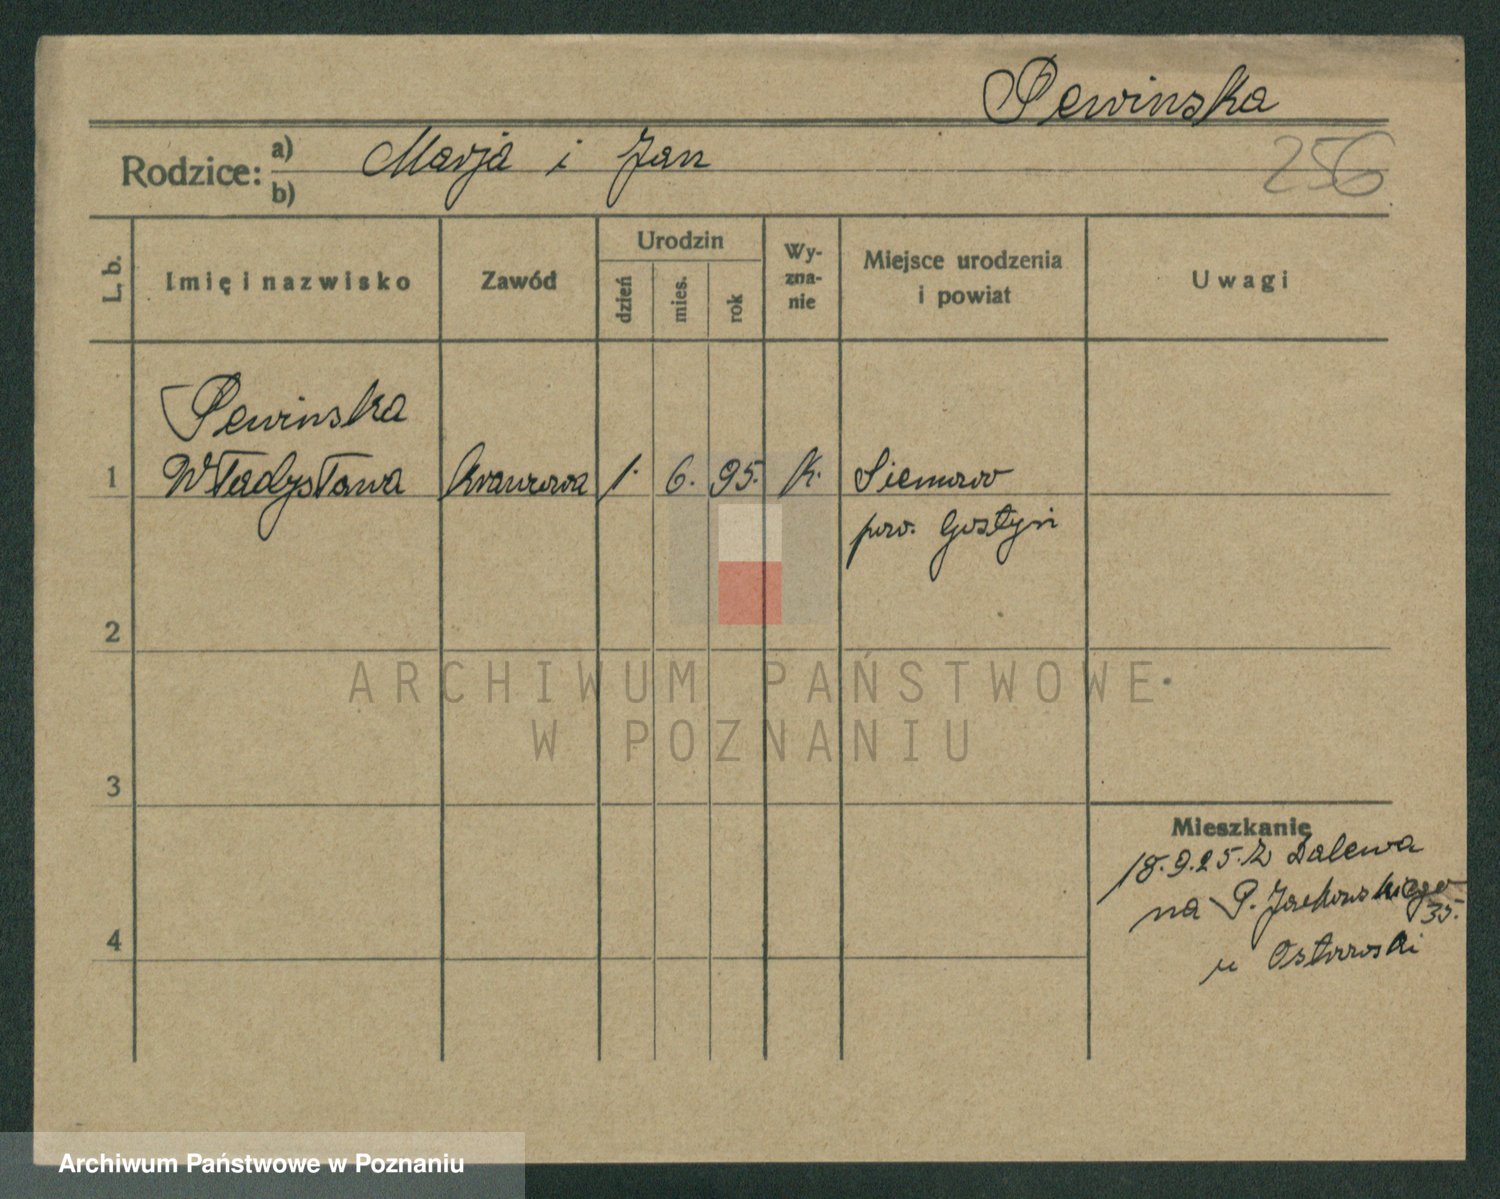 Pewinska
256
Rodzice: a) Marja i Jan
b)
L. b.
Imię i nazwisko
Zawód
Urodzin
dzień
mies.
rok
Wy-
zna-
nie
Miejsce urodzenia
i powiat
Uwagi
Pewinska
1 Władysława krawcowa 1. 6. 95. k. Siemowo
pow. Gostyń
2
ARCHIWUM PAŃSTWOWE
W POZNANIU
3
Mieszkanie
18.9.25. z Dalewa
na P. Jackowskiego
35.
u Ostrowski
4
Archiwum Państwowe w Poznaniu